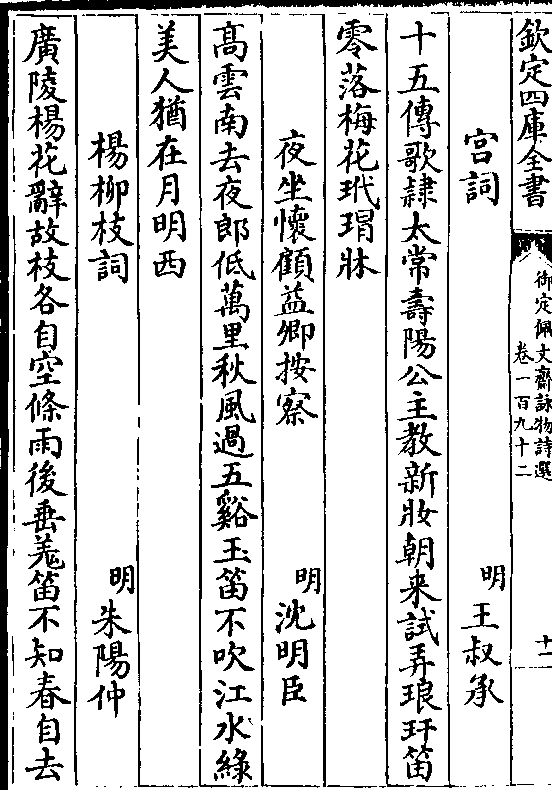 欽定四庫全書
御定佩文齋詠物詩選
卷一百九十二
十一
宫詞
明王叔承
十五傳歌隸太常壽陽公主教新妝朝来試弄琅玕笛
零落梅花玳瑁牀
夜坐懷顧益卿按察
明沈明臣
髙雲南去夜郎低萬里秋風過五谿玉笛不吹江水綠
美人猶在月明西
楊柳枝詞
明朱陽仲
廣陵楊花辭故枝各自空條雨後垂羗笛不知春自去